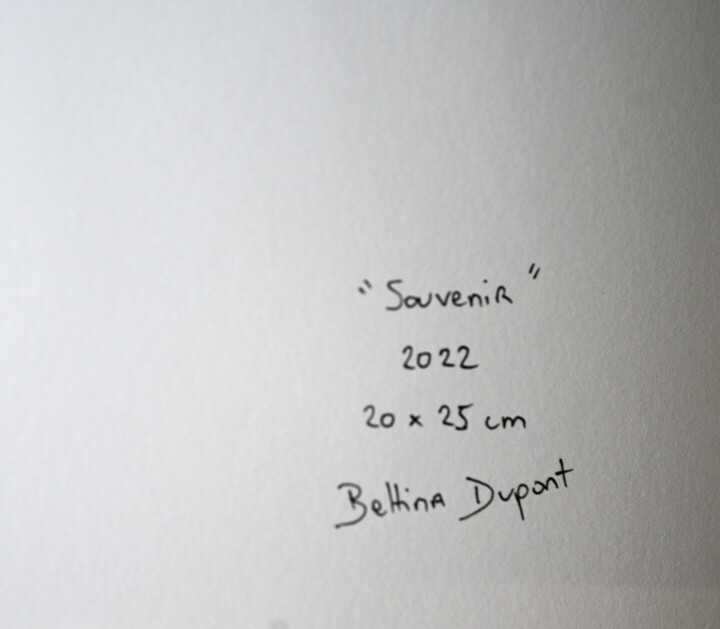 "Souvenir"
2022
20 x 25 cm
Bettina Dupont